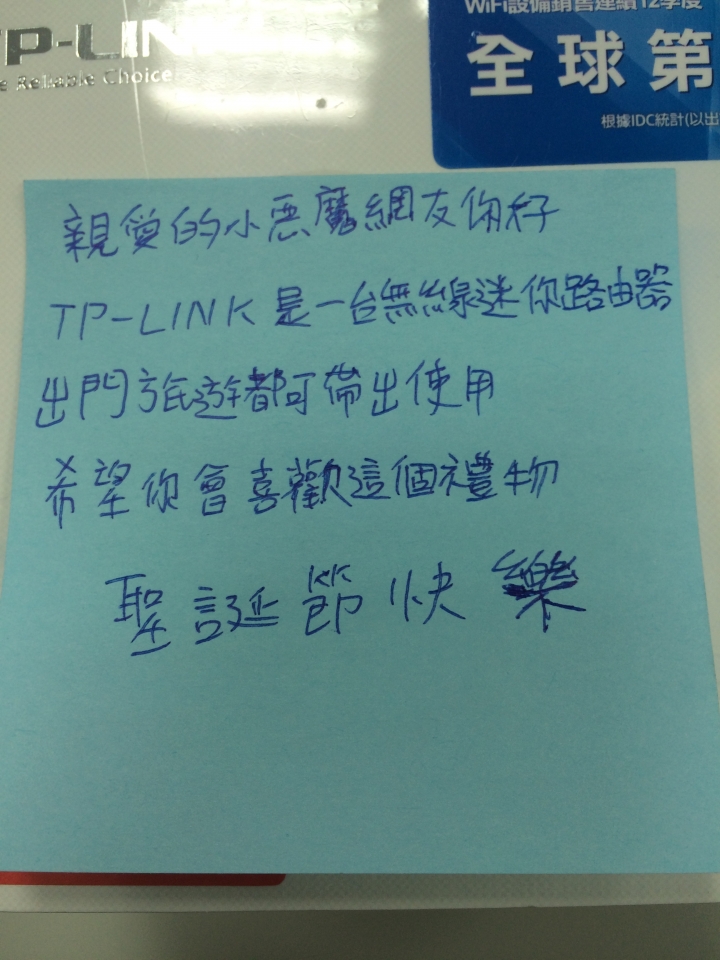 TP-LIN
e Reliable Choice
WiFi設備銷售連續12季度
全球第
根據IDC統計(以出
親愛的小惡魔網友你好
TP-LINK是一台無線迷你路由器
出門旅遊都可帶出使用
希望你會喜歡這個禮物
聖誕節快樂